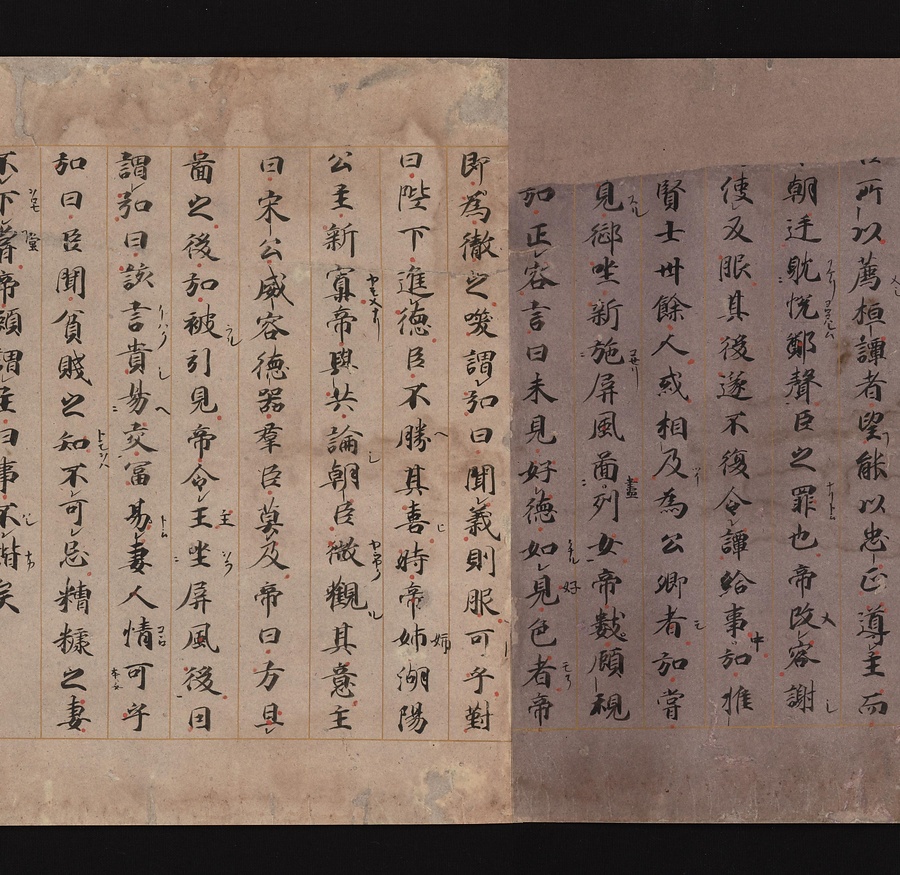 所以薦桓譚者望能以忠正導主而
朝廷躭悦鄭聲臣之罪也帝改容謝
使反服其後遂不復令譚給事中弘推
賢士卅餘人或相及為公卿者弘甞
見御坐新施屏風啚列女帝數顧視
弘正容言曰未見好德如見色者帝
即為徹之咲謂弘曰聞義則服可乎對
曰陛下進德臣不勝其喜時帝姉湖陽
公主新寡帝與共論朝臣微觀其意主
曰宋公威容德器羣臣莫及帝曰方且
啚之後弘被引見帝令主坐屏風後因
謂弘曰諺言貴易交冨易妻人情可乎
弘曰臣聞貧賤之知不可忘糟糠之妻
不下堂帝顧謂主曰事不諧矣